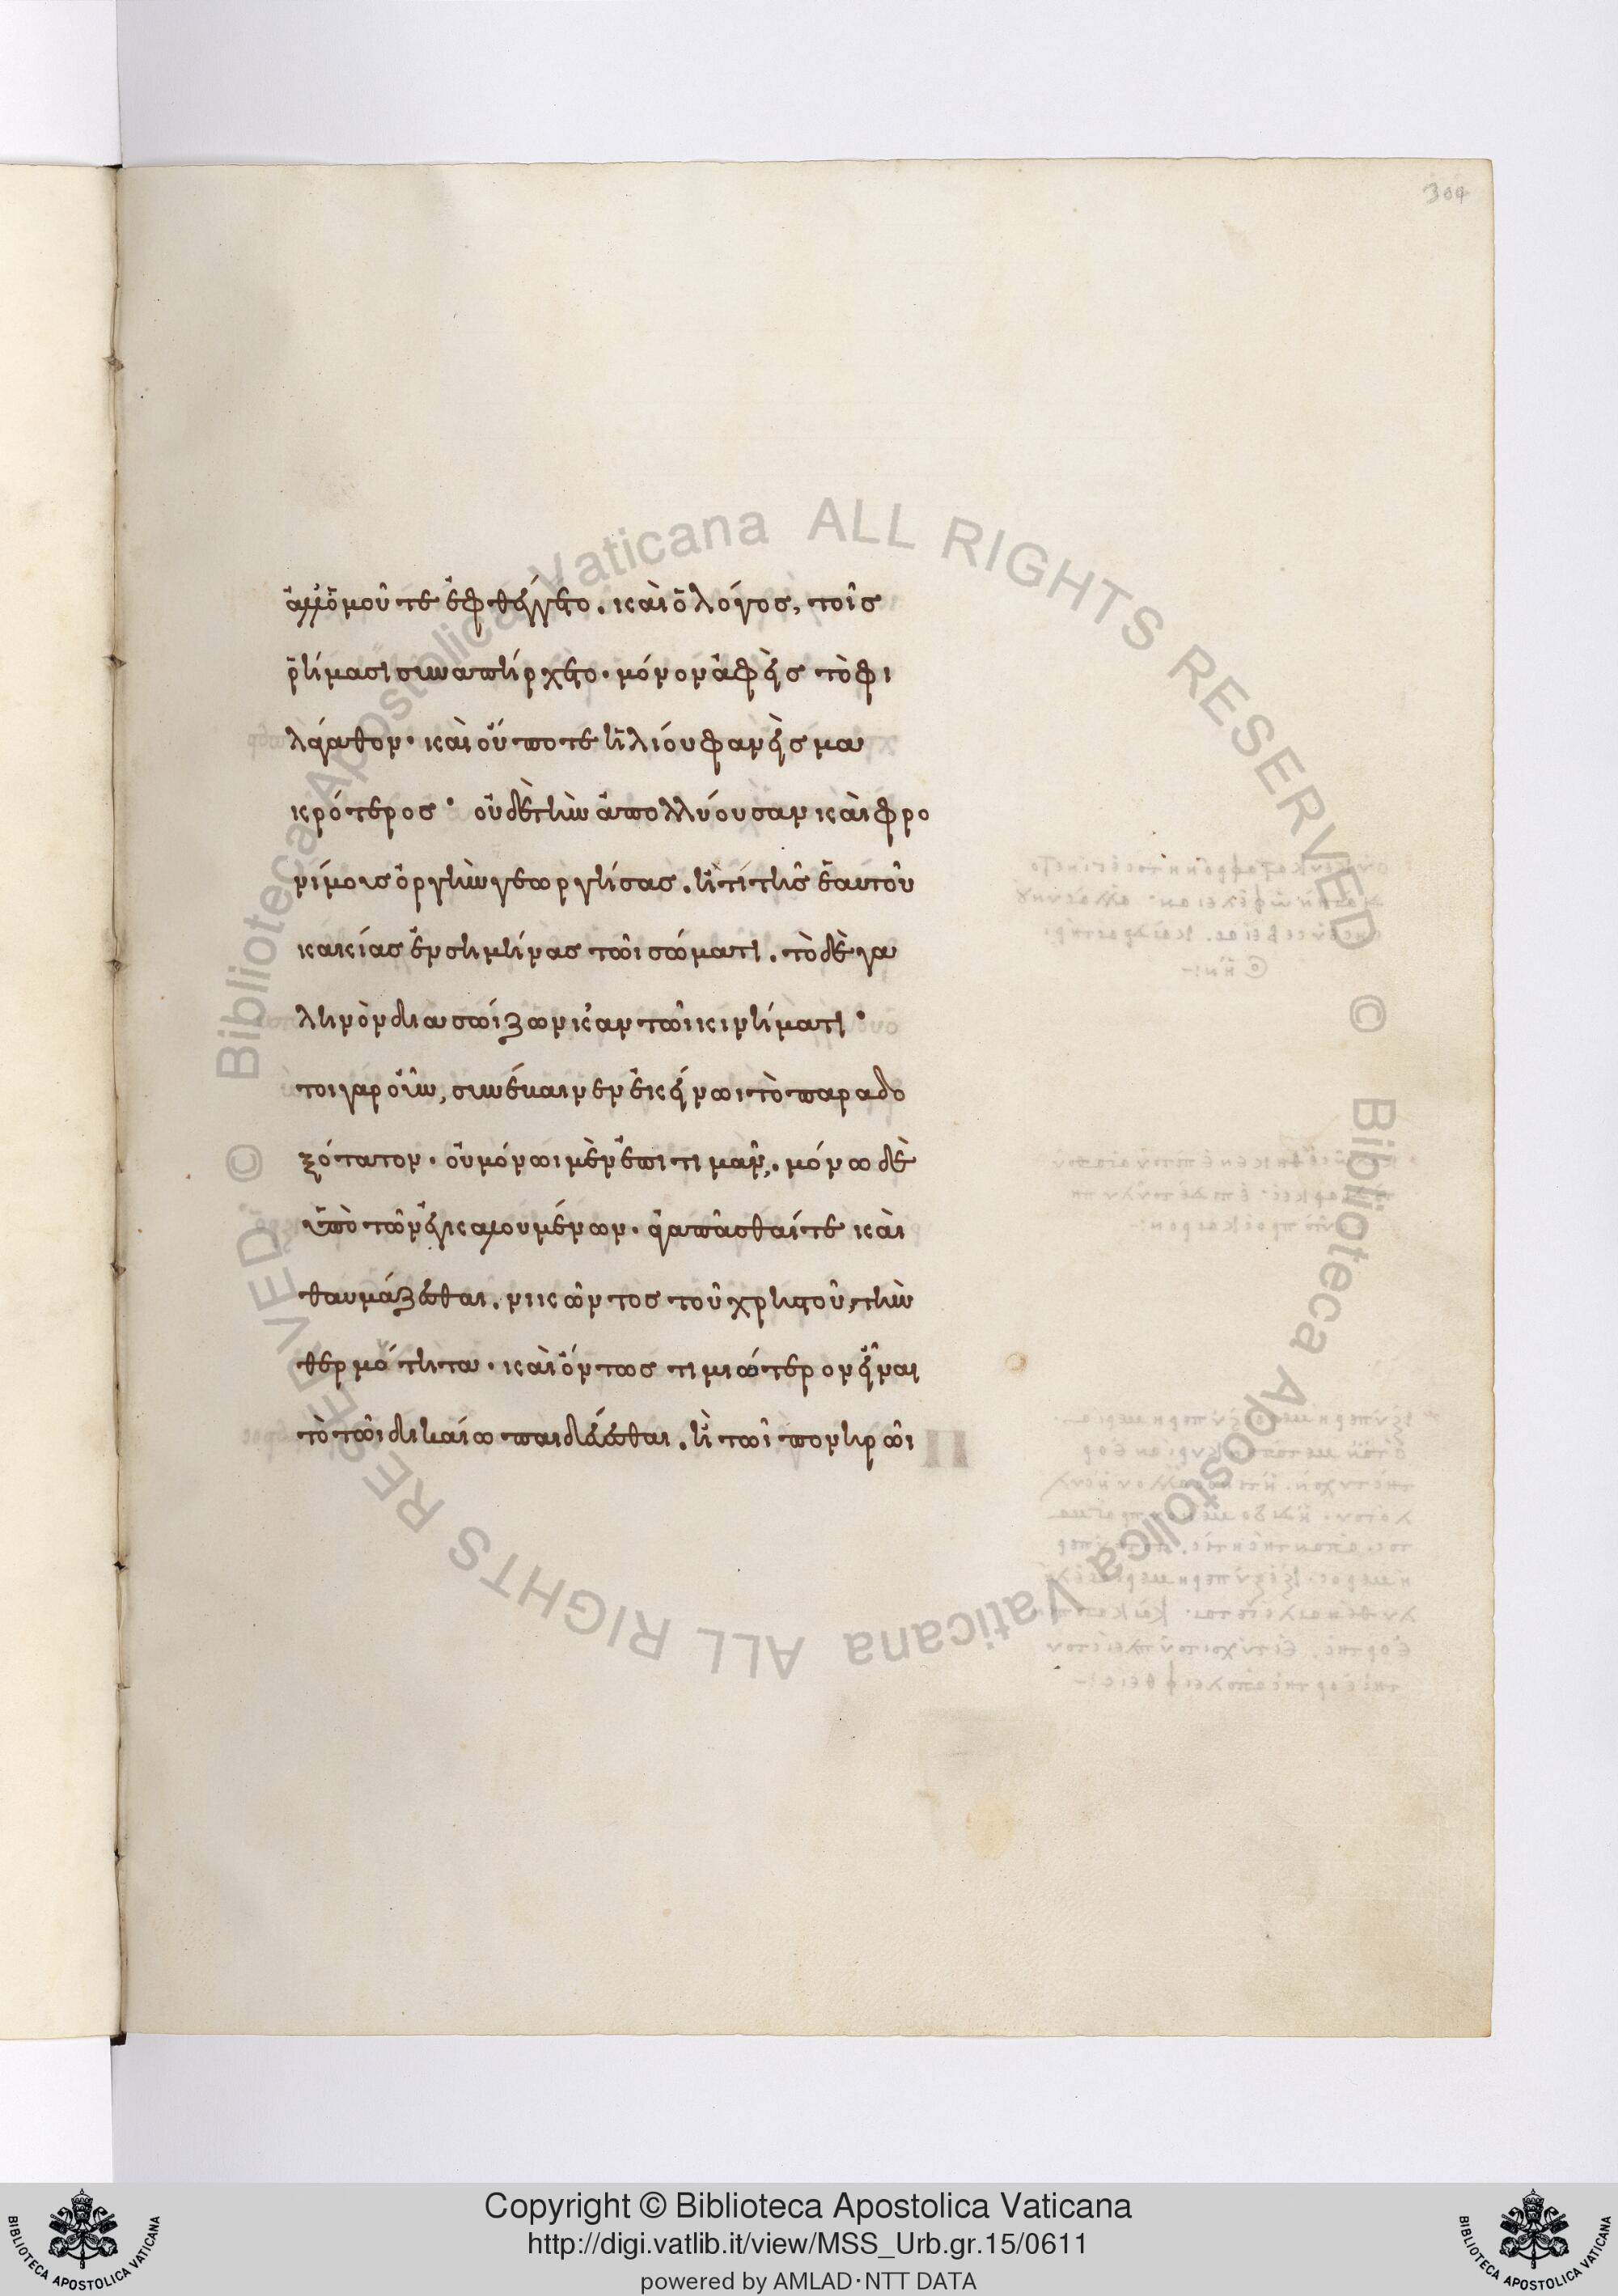 304
ἀλλ' ὁμοῦ τε ἐφθέγγετο. καὶ ὁ λόγος, τοῖς
ῥήμασι συναπήρχετο· μόνον ἀφεὶς τὸ φι
λάγαθον· καὶ οὔποτε ἡλίου φανεὶς μα
κρότερος· οὐδὲ τὴν ἀπολλύουσαν καὶ φρο
νίμους ὀργὴν γεωργήσας. ἤ τι τῆς ἑαυτοῦ
κακίας ἐνσημήνας τῶι σώματι. τὸ δὲ γα
ληνὸν διασώιζων κἀν τῶι κινήματι·
τοιγαροῦν, συνέβαινεν ἐκείνωι τὸ παραδο
ξότατον· οὐ μόνωι μὲν ἐπιτιμᾶν,. μόνω δὲ
ὑπὸ τῶν ἐγκαλουμένων· ἀγαπᾶσθαί τε καὶ
θαυμάζεσθαι. νικῶντος τοῦ χρηστοῦ, τὴν
θερμότητα· καὶ ὄντως τιμιώτερον εἶναι
τὸ τῶι δικαίω παιδεύεσθαι. ἢ τῶι πονηρῶι
Copyright © Biblioteca Apostolica Vaticana
http://digi.vatlib.it/view/MSS_Urb.gr.15/0611
powered by AMLAD·NTT DATA
BIBLIOTECA APOSTOLICA VATICANA
BIBLIOTECA APOSTOLICA VATICANA
© Biblioteca Apostolica Vaticana ALL RIGHTS RESERVED
© Biblioteca Apostolica Vaticana ALL RIGHTS RESERVED